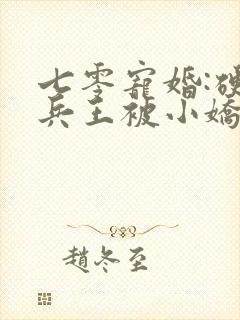 七零寵婚:硬
兵王被小嬌
趙冬至